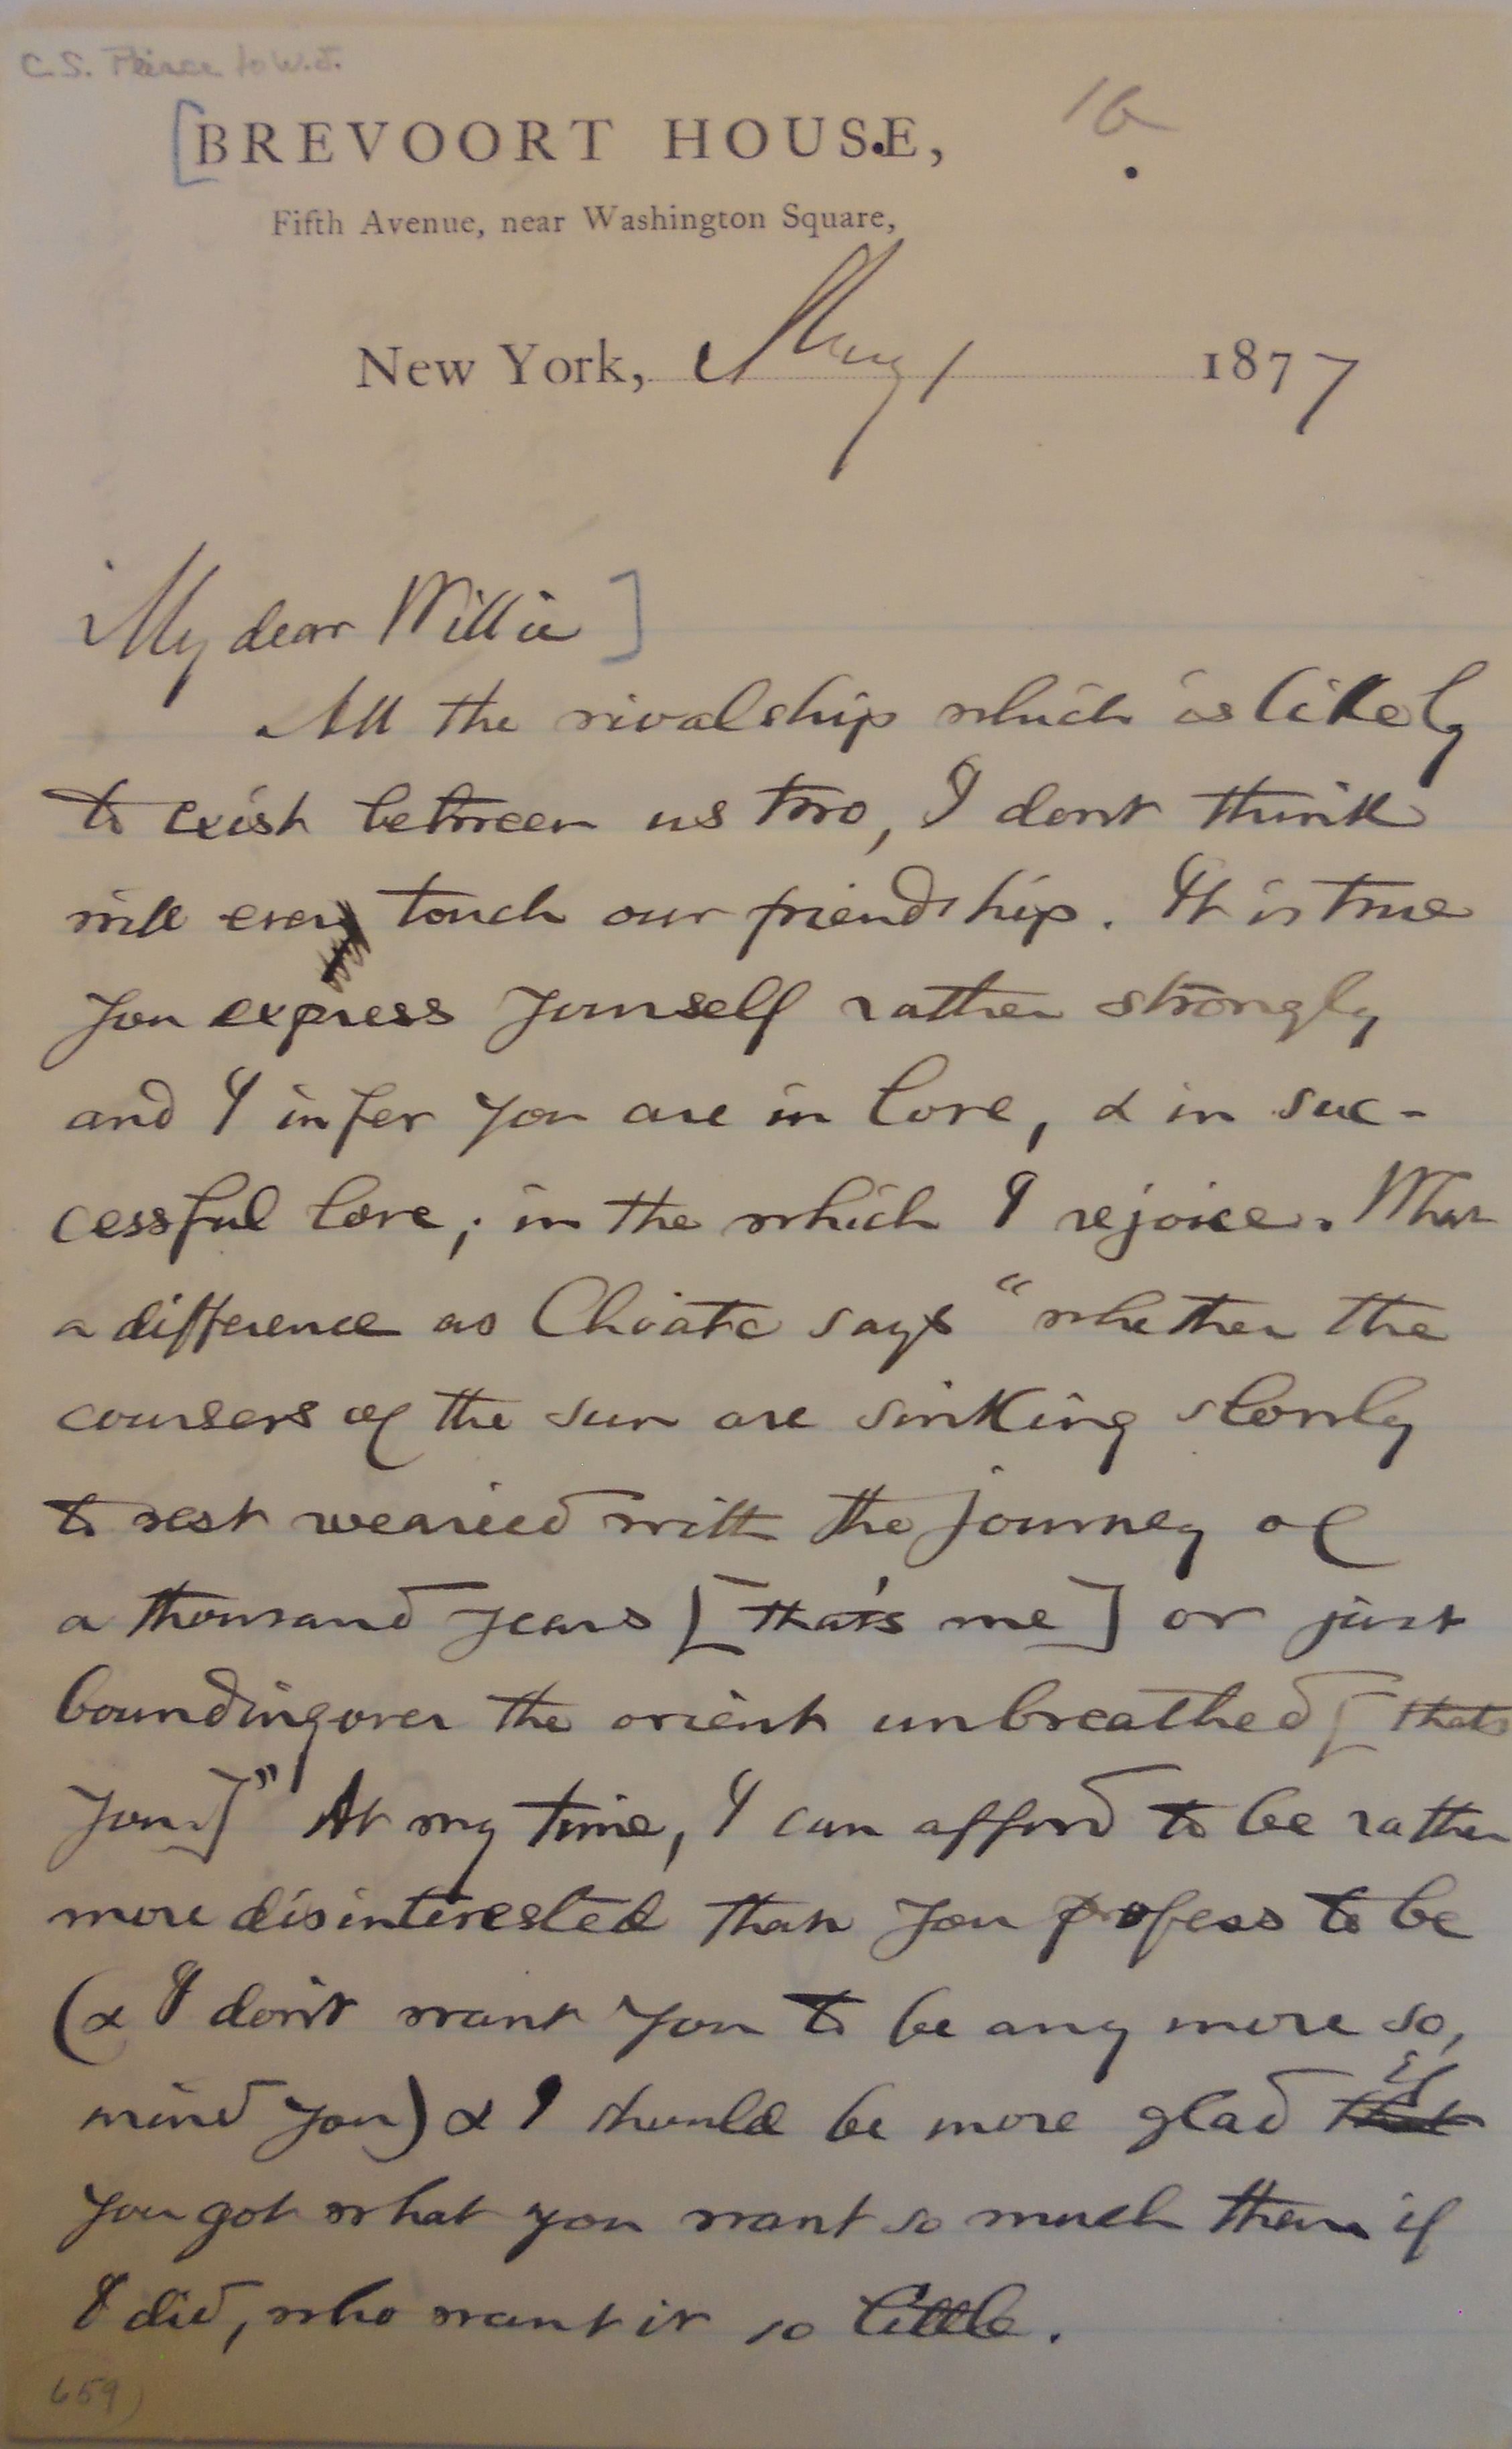 C.S. Peirce to W.J.
[BREVOORT HOUSE,
16
Fifth Avenue, near Washington Square,
New York, May 1 1877
My dear Willie]
All the rivalship which is likely
to exist between us two, I dont think
will ever touch our friendship. It is true
you express yourself rather strongly
and I infer you are in love, & in suc-
cessful love; in the which I rejoice. What
a difference as Choate says "whether the
coursers of the sun are sinking slowly
to rest wearied with the journey of
a thousand years [that's me] or just
bounding over the orient unbreathed [thats
you]" At my time, I can afford to be rather
more disinterested than you profess to be
(& I don't want you to be any more so,
mind you) & I should be more glad that if
you got what you want so much than if
I did, who want it so little.
659)